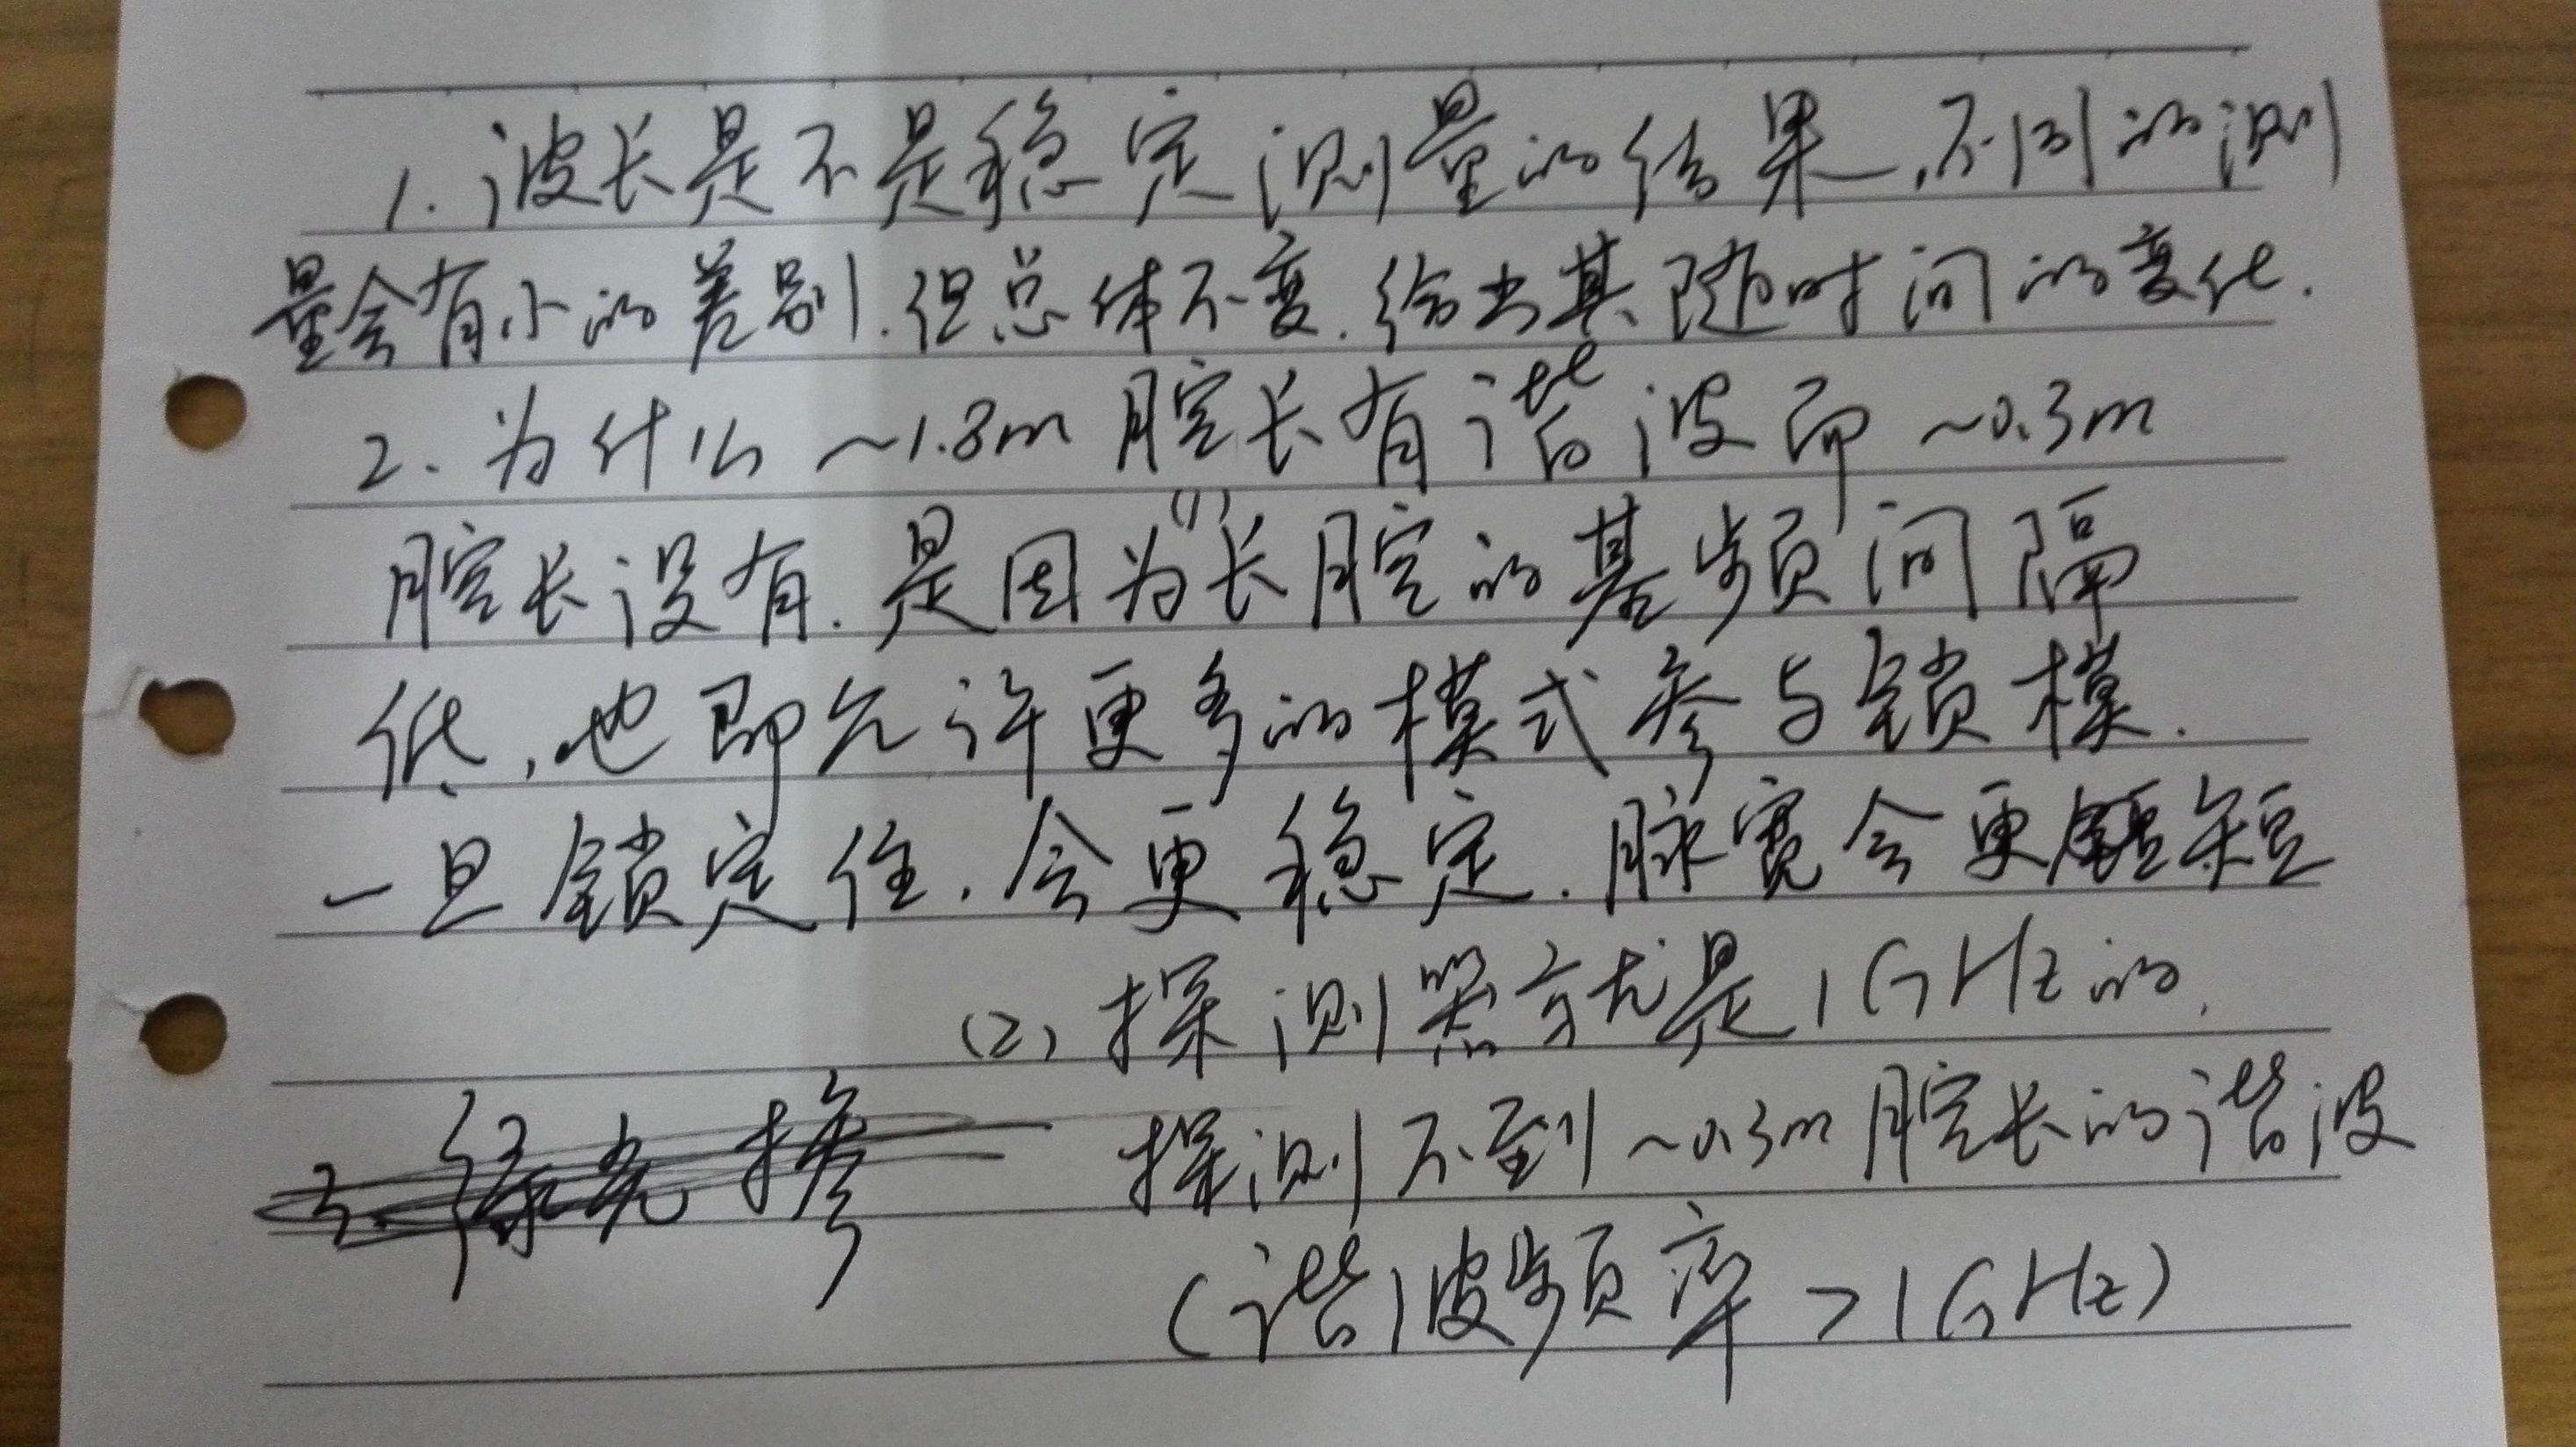 1. 波长是不是稳定测量的结果,不同的测
量会有小的差别.但总体不变.给出其随时间的变化.
2. 为什么 ~1.8m 腔长有谐波而 ~0.3m
腔长没有.是因为(1)长腔的基频间隔
低,也即允许更多的模式参与锁模.
一旦锁定住.会更稳定.脉宽会更短
(2) 探测器就是1GHz的,
探测不到 ~0.3m 腔长的谐波
(谐波频率 > 1GHz)